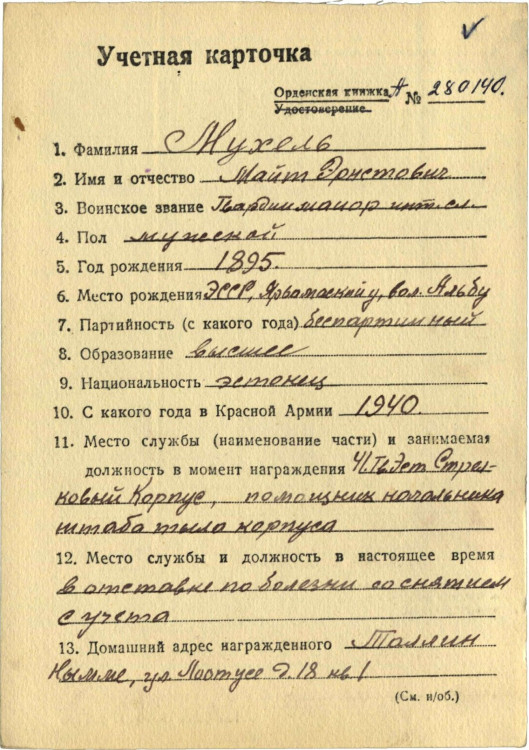 Учетная карточка
Орденская книжка А № 280140.
Удостоверение
1. Фамилия Мухель
2. Имя и отчество Майт Эрнстович
3. Воинское звание Гвардии майор инт.сл.
4. Пол мужской
5. Год рождения 1895.
6. Место рождения ЭССР, Ярвамаский у, вол. Альбу
7. Партийность (с какого года) беспартийный
8. Образование высшее
9. Национальность эстонец
10. С какого года в Красной Армии 1940.
11. Место службы (наименование части) и занимаемая
должность в момент награждения 41 Гв Эст Стрел-
ковый Корпус, помощник начальника
штаба тыла корпуса
12. Место службы и должность в настоящее время
в отставке по болезни со снятием
с учета
13. Домашний адрес награжденного Таллин
Нымме, ул. Лоотусе д. 18 кв 1
(См. н/об.)